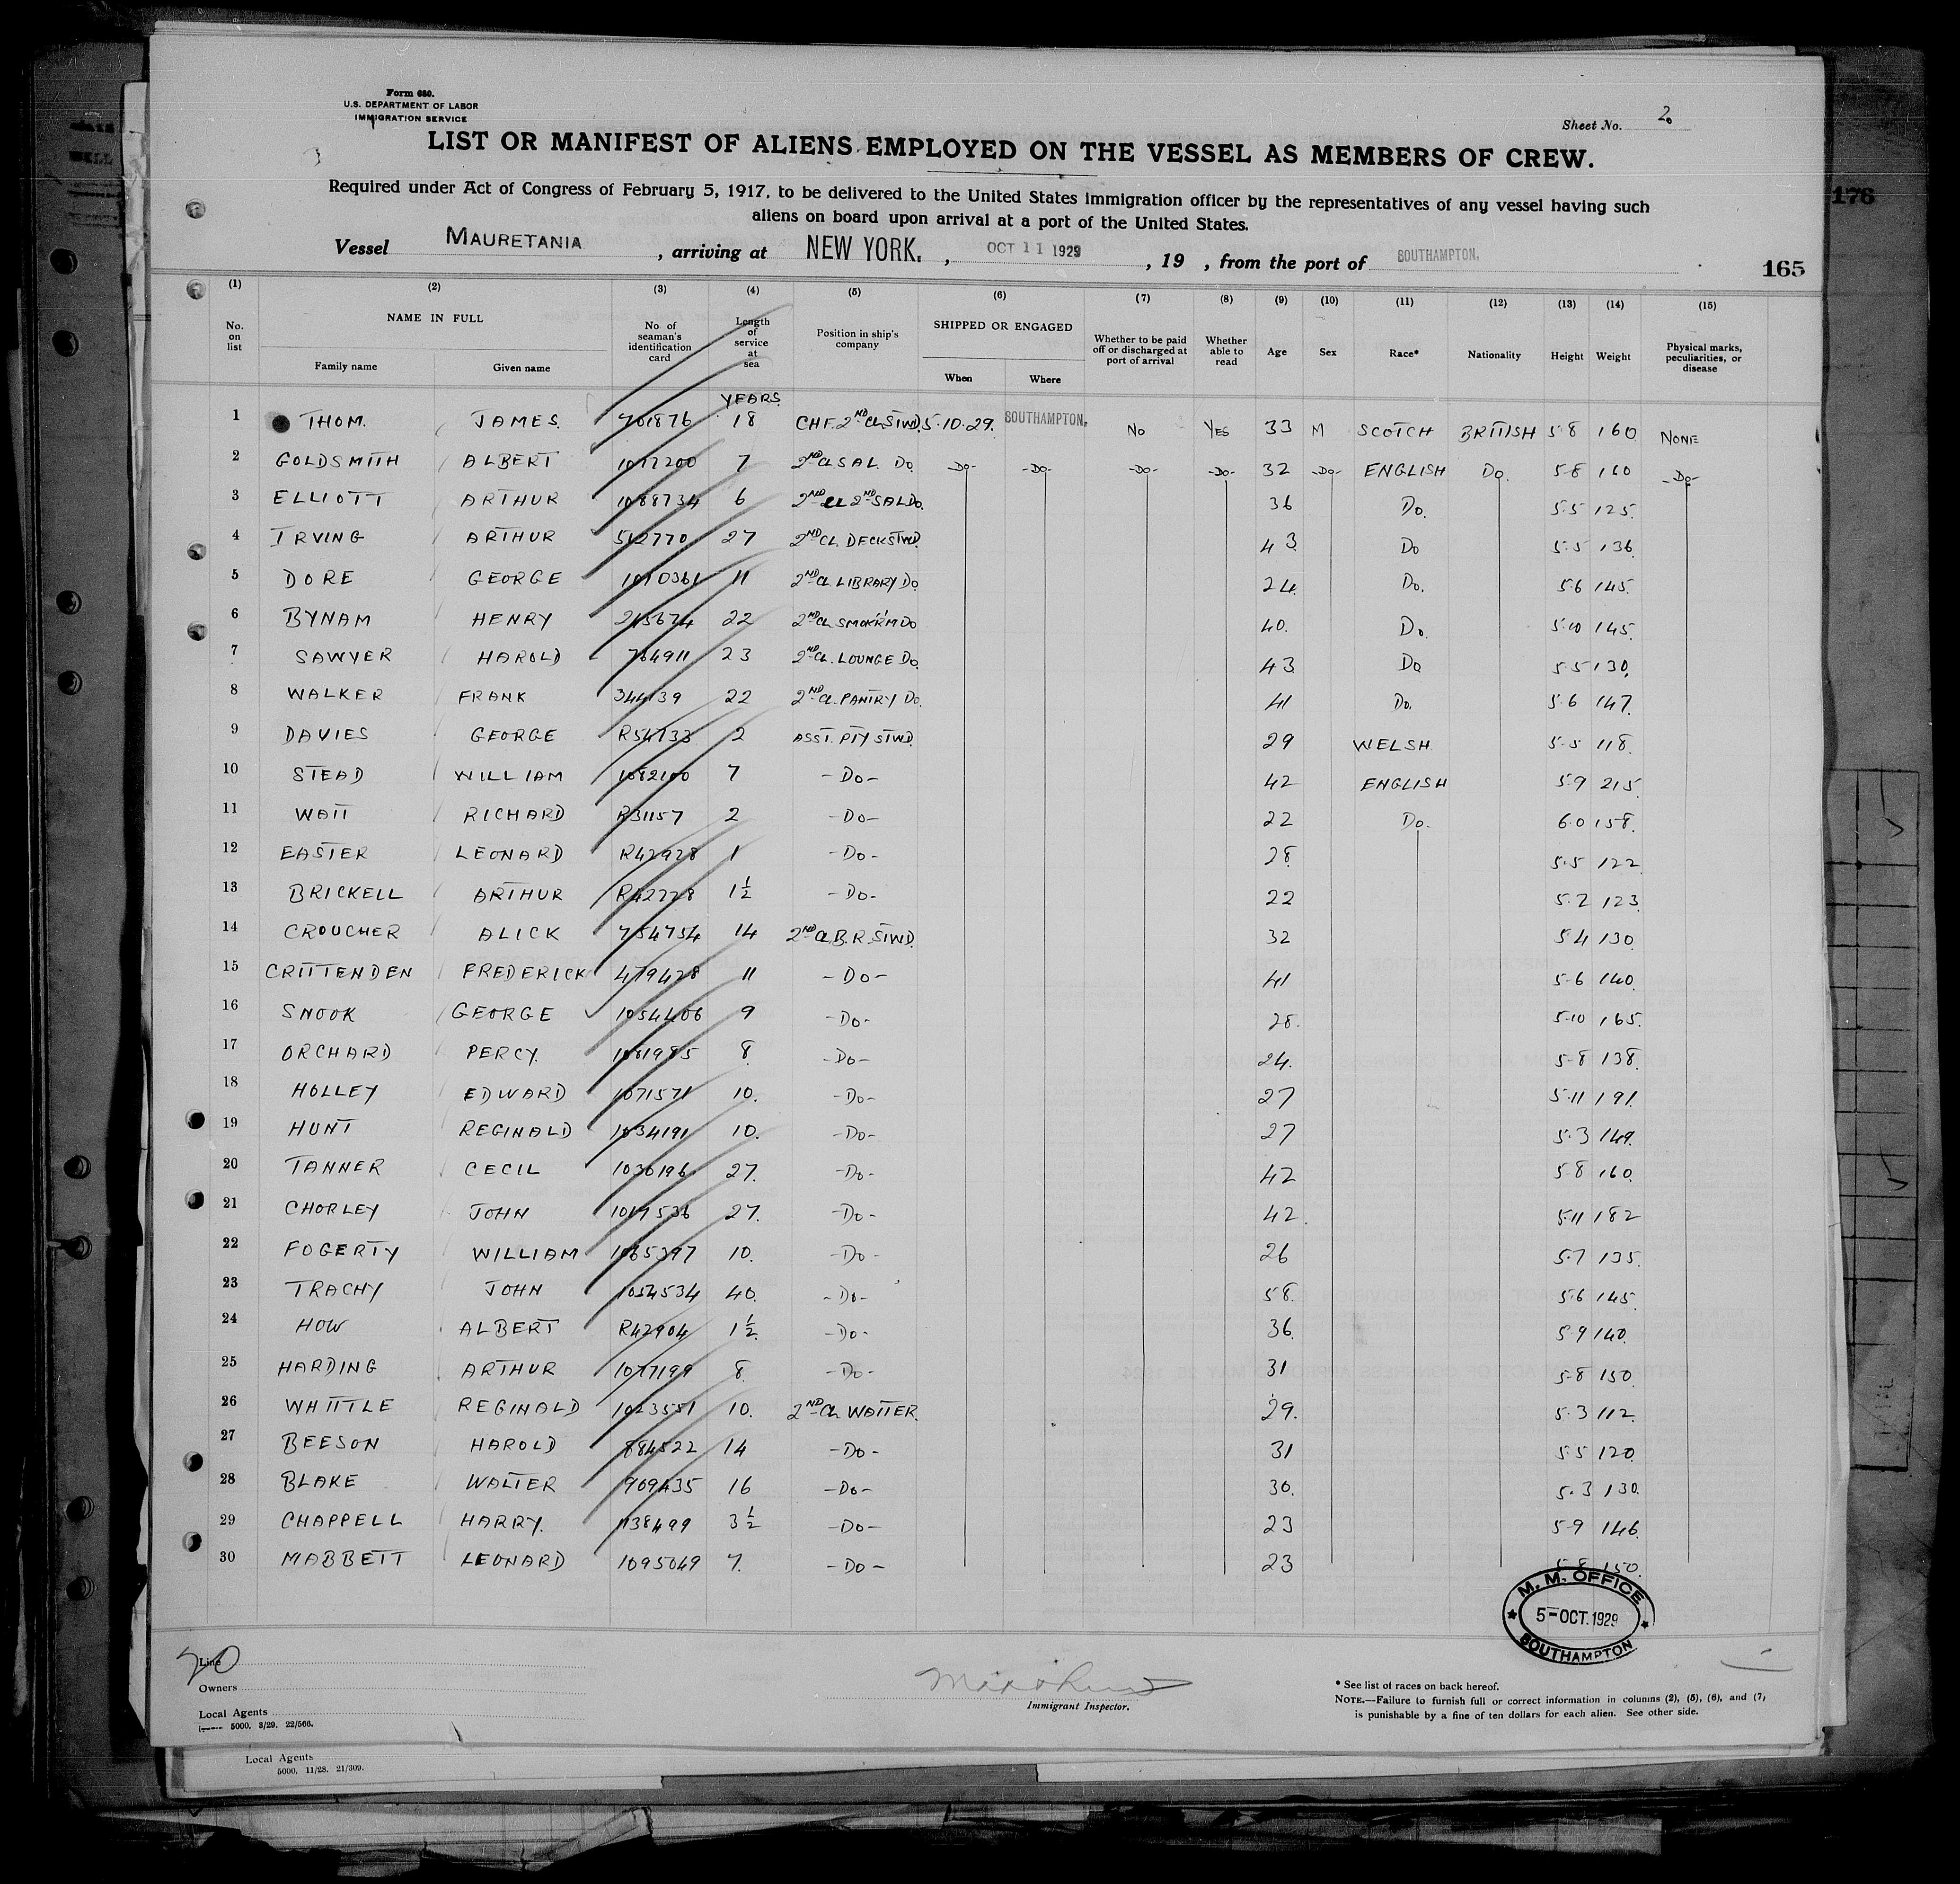 Form 680.
U.S. DEPARTMENT OF LABOR
IMMIGRATION SERVICE
Sheet No. 2.
LIST OR MANIFEST OF ALIENS EMPLOYED ON THE VESSEL AS MEMBERS OF CREW.
Required under Act of Congress of February 5, 1917, to be delivered to the United States immigration officer by the representatives of any vessel having such
aliens on board upon arrival at a port of the United States.
176
Vessel MAURETANIA , arriving at NEW YORK. , OCT 11 1929 , 19 , from the port of SOUTHAMPTON.
165
(1) (2) (3) (4) (5) (6) (7) (8) (9) (10) (11) (12) (13) (14) (15)
No. on list NAME IN FULL Family name Given name No. of seaman's identification card Length of service at sea Position in ship's company SHIPPED OR ENGAGED When Where Whether to be paid off or discharged at port of arrival Whether able to read Age Sex Race* Nationality Height Weight Physical marks, peculiarities, or disease
YEARS.
1 THOM. JAMES. 701876 18 CHF. 2ND CL STWD. 5.10.29. SOUTHAMPTON. NO YES 33 M SCOTCH BRITISH 5 8 160 NONE
2 GOLDSMITH ALBERT 1077200 7 2ND CL SAL. DO. -DO- -DO- -DO- -DO- 32 -DO- ENGLISH DO. 5.8 160 -DO-
3 ELLIOTT ARTHUR 1088734 6 2ND CL 2ND SAL DO. 36 DO. 5.5 125.
4 IRVING ARTHUR 512770 27 2ND CL. DECK STWD. 43 DO 5.5 136.
5 DORE GEORGE 1010361 11 2ND CL. LIBRARY DO. 24. DO. 5.6 145.
6 BYNAM HENRY 22 2ND CL. SMOK'R'M DO 40. DO. 5.10 145.
7 SAWYER HAROLD 764911 23 2ND CL. LOUNGE DO. 43 DO 5.5 130.
8 WALKER FRANK 344139 22 2ND CL. PANTRY DO. 41 DO. 5.6 147.
9 DAVIES GEORGE R54733 2 ASST. PTY STWD. 29 WELSH. 5.5 118.
10 STEAD WILLIAM 1082100 7 -DO- 42 ENGLISH 5.9 215.
11 WATT RICHARD R31157 2 -DO- 22 DO. 6.0 158.
12 EASTER LEONARD R42928 1 -DO- 28. 5.5 122
13 BRICKELL ARTHUR R42778 1½ -DO- 22 5.2 123
14 CROUCHER ALICK 754754 14 2ND CL B.R. STWD. 32 5.4 130.
15 CRITTENDEN FREDERICK 479428 11 -DO- 41 5.6 140.
16 SNOOK GEORGE 1054406 9 -DO- 28. 5.10 165.
17 ORCHARD PERCY. 1081985 8 -DO- 24. 5.8 138.
18 HOLLEY EDWARD 1071571 10. -DO- 27 5.11 191.
19 HUNT REGINALD 1034191 10. -DO- 27 5.3 149.
20 TANNER CECIL 1030196 27. -DO- 42 5.8 160.
21 CHORLEY JOHN 1017536 27. -DO- 42. 5.11 182
22 FOGERTY WILLIAM 1065397 10. -DO- 26 5.7 135.
23 TRACHY JOHN 1054534 40. -DO- 58. 5.6 145.
24 HOW ALBERT R42904 1½ -DO- 36. 5.9 140.
25 HARDING ARTHUR 1077199 8. -DO- 31 5.8 150.
26 WHITTLE REGINALD 1023551 10. 2ND CL. WAITER. 29. 5.3 112.
27 BEESON HAROLD 884522 14 -DO- 31 5.5 120.
28 BLAKE WALTER 909435 16 -DO- 30. 5.3 130.
29 CHAPPELL HARRY. 1138499 3½ -DO- 23 5.9 146.
30 MABBETT LEONARD 1095049 7. -DO- 23 5.8 150.
M. M. OFFICE
5-OCT.1929
SOUTHAMPTON
Line
Owners
Local Agents
5000. 3/29. 22/566.
Immigrant Inspector.
* See list of races on back hereof.
NOTE.—Failure to furnish full or correct information in columns (2), (5), (6), and (7)
is punishable by a fine of ten dollars for each alien. See other side.
Local Agents
5000. 11/28. 21/309.